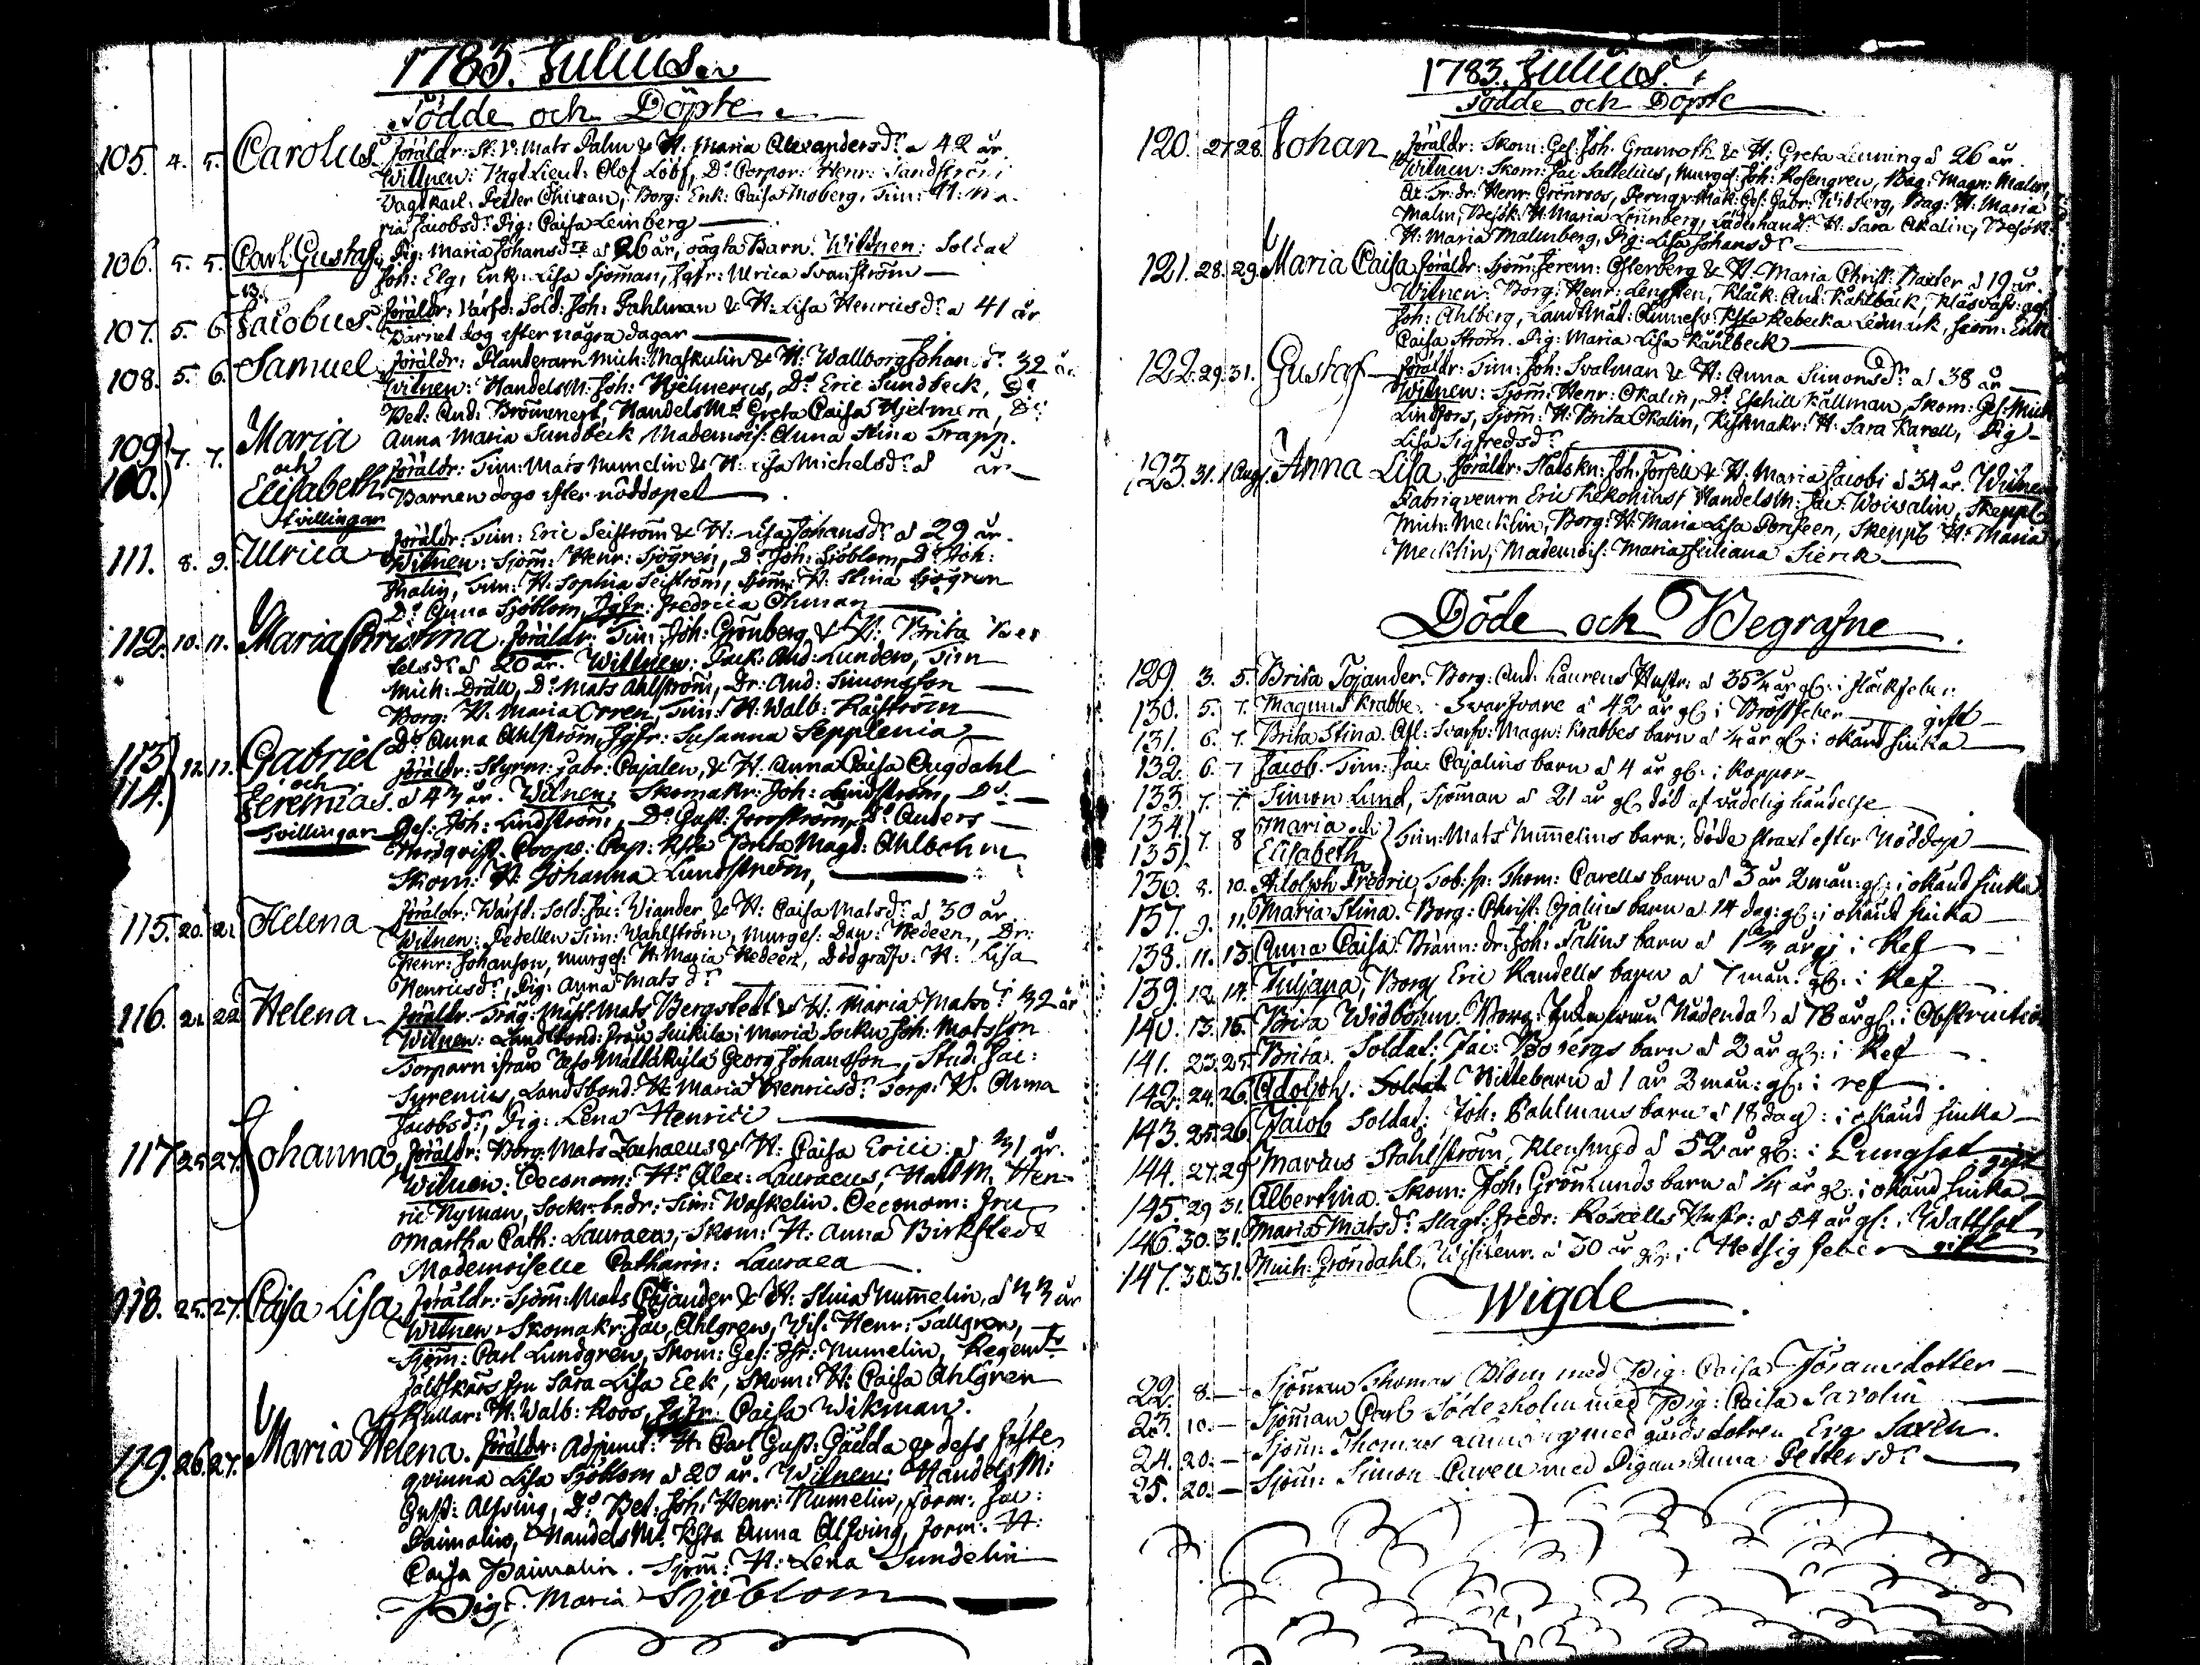 1783. Julius.
Födde och Döpte.
105. 4. 5. Carolus. Föräldr: Mats Palm & H. Maria Alexandersdr. a 42 år.
Witnen: Vagt Lieut: Olof Löbf, Do Corpor: Henr: Sandström
Vagtkarl: Petter Öhman, Borg: Enk: Caisa Moberg, Tim: H: Ma
ria Jacobsdr. Pig: Caisa Leinberg
106. 5. 5. Carl Gustaf. Pig: Maria Johansdr a 26 år, oägta Barn. Witnen: Soldat
Joh: Elg, Enk: Lisa Sjöman, Jgfr: Ulrica Svanström
107. 5. 6. Jacobus. Föräldr: Värfd: Sold: Joh: Pahlman & H: Lisa Henricsdr. a 41 år
Barnet dog efter några dagar
108. 5. 6. Samuel Föräldr: Planterarn Mich: Maskulin & H: Wallborg Johansdr. 32 år
Witnen: HandelsM: Joh: Hjelmerus, Do Eric Sundbeck,
Bet: And: HandelsMs Greta Caisa
Anna Maria Sundbeck Mademois: Anna Stina Trapp.
109 7. 7. Maria
och
100. Elisabeth. Föräldr: Tim: Mats Numelin & H: Lisa Michelsdr. a år
Barnen dogo efter nöddopet
tvillingar
111. 8. 9. Ulrica Föräldr: Tim: Eric Seiström & H: Lisa Johansdr. a 29 år.
Witnen: Sjöm: Henr: Sjögren, Do Joh: Sjöblom, Do Joh:
Thalin, Tim: H: Sophia Seiström, Sjöm: H: Stina Sjögren
Do Anna Sjöblom, Jgfr: Fredrica Öhman
112. 10. 11. Maria Christina. Föräldr: Tim: Joh: Grönberg & H: Brita
a 20 år. Witnen: And: Lunden, Tim
Mich: Dräll, Do Mats Ahlström, Dr: And: Simonsson
Borg: H: Maria Orren, Tim: H: Walb: Råström
Do Anna Ahlström, Jgfr: Susanna Sepplenia
113 12. 13. Gabriel
och
114. Jeremias. Föräldr: Styrm: Gabr: Cajalen, & H: Anna Caisa Augdahl
a 43 år. Witnen: Skomakr: Joh: Lindström, Do
Tvillingar Ges: Joh: Lindström, Do Gust: Forsström, Do Anders
Brita Magd: Ahlbohm
Skom: H: Johanna Lundström,
115. 20. 21. Helena Föräldr: Wärfd: Sold: Jac: Wiander & H: Caisa Matsdr. a 30 år.
Witnen: Pedellen Sim: Wahlström, Murges: Dav: Hedeen, Dr:
Henr: Johanson, Murges: H: Maria Hedeen, Dödgräfv: H: Lisa
Henricsdr., Pig: Anna Matsdr.
116. 21. 22. Helena. Föräldr: Träg: Mäst: Mats Bergstedt & H: Maria Matsdr. 32 år
Witnen: Landtbond: från Maria Sockn Joh: Matsson
Torparn ifrån Georg Johansson, Stud: Jac:
Syrenius, Landsbond: H: Maria Henricsdr. Torp: H. Anna
Jacobsdr., Pig: Lena Henrici
117 25 27. Johanna, Föräldr: Borg: Mats Zachaeus & H: Caisa Erici: a 31 år.
Witnen: Oeconom: Hr Alex: Lauraeus, HandM: Hen
ric Nyman, Sim: Waskelin. Oeconom: Fru
Martha Cath: Lauraea, Skom: H: Anna Birkstedt
Mademoiselle Catharin: Lauraea
118. 25. 27. Caisa Lisa Föräldr: Sjöm: Mats Cajander & H: Stina Numelin, a 33 år
Witnen Skomakr: Jac, Ahlgren, Henr: Tallgren,
Sjöm: Carl Lundgren, Skom: Ges: Numelin, Regemts
fältskärs fru Sara Lisa Eek, Skom: H: Caisa Ahlgren
H: Walb: Roos, Jgfr: Caisa Wikman.
119. 26. 27. Maria Helena. Föräldr: Adjunct: Hr Carl Gust: Gädda & dess fäste
qvinna Lisa Sjöblom a 20 år. Witnen: HandelsM:
Gust: Alfving, Do Bet: Joh: Henr: Numelin, Form: Jac:
Paimalin, HandelsM: Anna Alfving, Form: H:
Caisa Paimalin. Sjöm: H: Lena Sundelin
Pig: Maria Sjöblom
1783. Julius.
Födde och Döpte
120. 27 28. Johan Föräldr: Skom: Ges: Joh. Granroth & H: Greta Lenning a 26 år.
Witnen: Skom: Jac Sallelius, Murges: Joh: Rosengren, Bag: Magn: Malm,
Henr: Grönroos, Ges: Gabr: Widberg, Bag: H: Maria
Malm, Besök: H: Maria Lönnberg, H: Sara Okalin, Besök:
H: Maria Malmberg, Pig: Lisa Johansdr.
121. 28. 29. Maria Caisa Föräldr: Sjöm: Jerem: Österberg & H: Maria Christ: a 19 år.
Witnen: Borg: Henr: Lengsten, Kläck: And: Kahlbäck,
Joh: Ahlberg, Rebecka Ledmark, Sjöm: Enk
Caisa Ström. Pig: Maria Lisa Kahlbeck
122. 29. 31. Gustaf Föräldr: Tim: Joh: Svalman & H: Anna Simonsdr. a 38 år
Witnen: Sjöm: Henr: Okalin, Do Eschill Källman, Skom: Ges: Mich
Lindfors, Sjöm: H: Brita Okalin, H: Sara Karell, Pig
Lisa Sigfredsdr.
123. 31. 1 Aug. Anna Lisa Föräldr: Joh: Forsell & H: Maria Jacobi a 34 år. Witnen
Fabriqveurn Eric HandelsM: Jac: Woivalin, Skepp
Mich: Mecklin, Borg: H: Maria Lisa Skepp H: Maria
Mecklin, Mademois: Maria Juliana Sierck
Döde och Begrafne
129. 3. 5. Brita Tojander. Borg: And: Laurens Hustr: a 35 3/4 år gl: i fläckfeber
130. 5. 7. Magnus Krabbe. Svarfvare a 42 år gl: i Bröstfeber gift
131. 6. 7. Brita Stina. Afl: Svarfv: Magn: Krabbes barn a 1/4 år gl: i okänd siuka
132. 6. 7 Jacob. Tim: Jac: Cajalins barn a 4 år gl: i Koppor
133. 7. 7. Simon Lund, Sjöman a 21 år gl. död af vådelig händelse
134. Maria och
135. 7. 8 Elisabeth Tim: Mats Numelins barn, döde straxt efter Nöddop
136. 8. 10. Adolph Fredric, Thom: Carells barn a 3 år 2 mån: gl: i okänd siuka
137. 9. 11. Maria Stina. Borg: Christ: Ojalins barn a 14 dag: gl: i okänd siuka
138. 11. 13. Anna Caisa. Joh: Talins barn a 1 3/4 år gl i Ref
139. 12. 14. Juliana, Borg Eric Randells barn a 7 mån: gl: i Ref
140. 13. 15. Brita Widbohm. Borg: från Nådendal a 78 år gl: i Obstruction
141. 23. 25. Brita. Soldat: Jac: Bobergs barn a 2 år gl: i Ref
142. 24. 26. Adolph. Hittebarn a 1 år 3 mån: gl: i ref
143. 25. 26. Jacob Soldat: Joh: Pahlmans barn a 18 dag: i okänd siuka
144. 27. 29 Marcus Stahlström, Klensmed a 52 år gl: i Lungsot gift
145 29 31. Albertina. Skom: Joh: Grönlunds barn a 1/4 år gl: i okänd siuka
146. 30. 31. Maria Matsdr. Slagt: Fredr: Roscells Hustr: a 54 år gl: i Wattsot
147. 30. 31. Mich: Gröndahl, Wisiteur. a 30 år gl: i Hetsig feber gift
Wigde
22. 8. Sjöman Thomas Blom med Pig: Caisa Jöransdotter
23. 10. Sjöman Carl Söderholm med Pig: Caisa Savolin
24. 20. Sjöm: Thomas med gårds dottren Eva Saxén.
25. 20. Sjöm: Simon Carell med Pigan Anna Pettersdr.